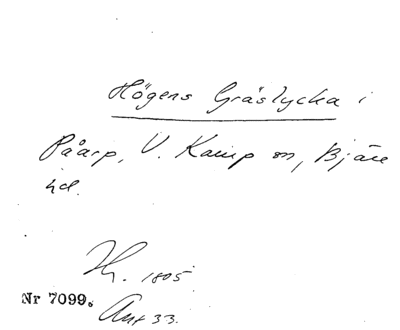 Högens Gräslycka i
Påarp, V. Karup sn, Bjäre
hd.
Th. 1805.
Nr 7099.
Ant 33.